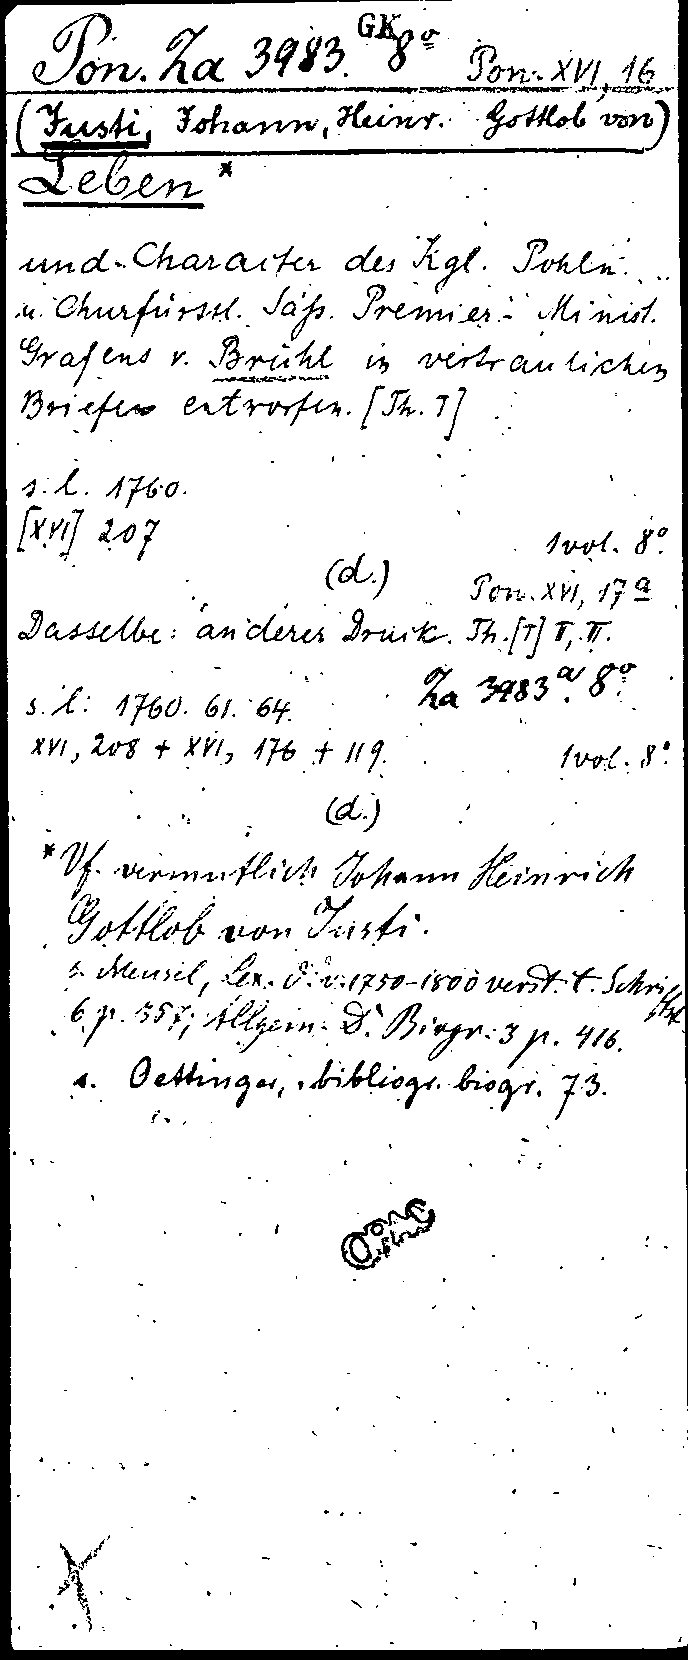 Pon. Za 3983. GK 8º Pon. XVI, 16
(Justi, Johann, Heinr. Gottlob von)
Leben*
und Character des Kgl. Pohln.
u. Churfürstl. Säss. Premier-Minist.
Grafens v. Brühl in vertraulichen
Briefen entworfen. [Th. I]
s. l. 1760.
[XVI] 207
1 vol. 8º.
(d.)
Pon. XVI, 17 a
Dasselbe: anderer Druck. Th. [I] II, III.
Za 3983 a. 8º
s. l. 1760. 61. 64.
XVI, 208 + XVI, 176 + 119.
1 vol. 8º
(d.)
* Vf. vermutlich Johann Heinrich
Gottlob von Justi.
s. Meusel, Lex. d. v. 1750-1800 verst. t. Schriftst.
6 p. 357; Allgem. D. Biogr. 3 p. 416.
s. Oettinger, bibliogr. biogr. 73.